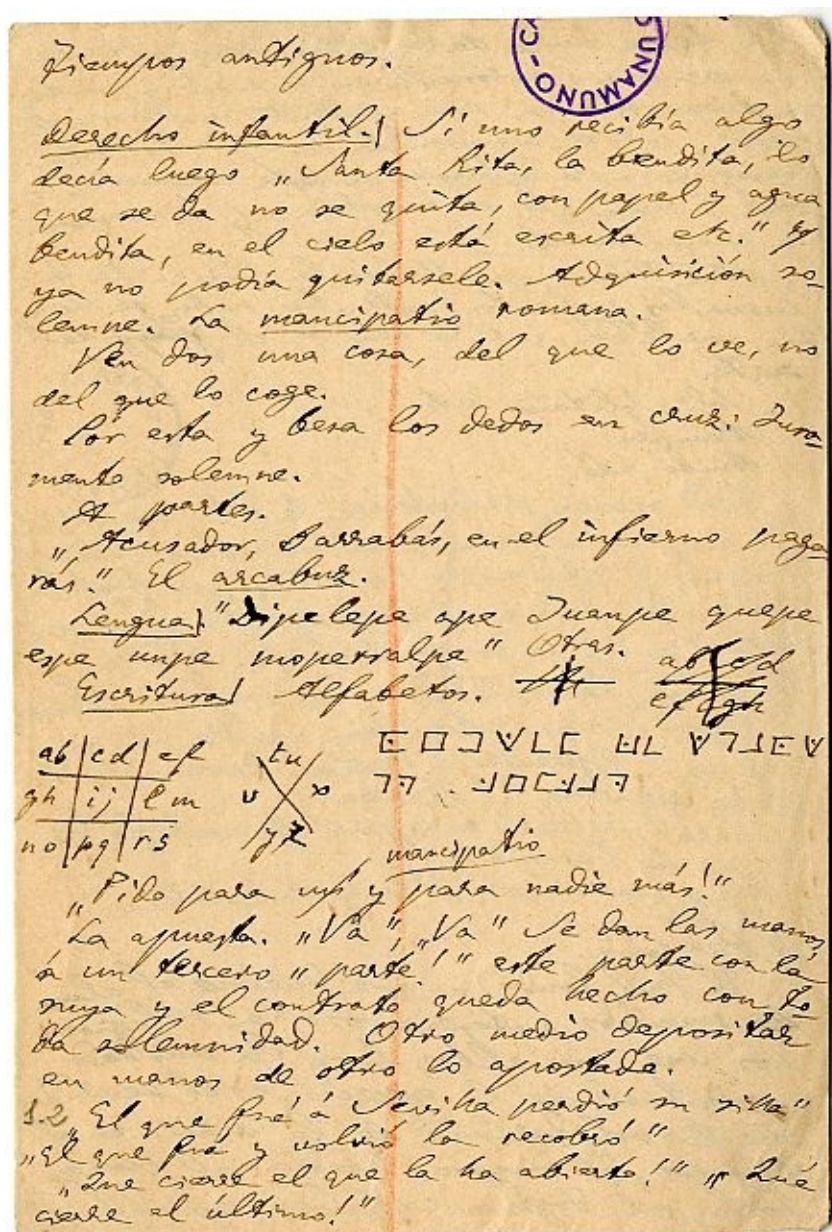 UNAMUNO - CA
Tiempos antiguos.
Derecho infantil. Si uno recibía algo
decía luego "Santa Rita, la bendita, lo
que se da no se quita, con papel y agua
bendita, en el cielo está escrita etc." y
ya no podía quitarsele. Adquisición so-
lemne. La mancipatio romana.
Ven dos una cosa, del que lo ve, no
del que lo coge.
Por esta y besa los dedos en cruz: Jura-
mento solemne.
A partes.
"Acusador, Barrabás, en el infierno paga-
rás." El arcabuz.
Lengua "Dipelepe ape Juanpe quepe
espe unpe
Escritura Alfabetos.
ab cd ef
gh ij lm
no pq rs
tu
v x
yz
mancipatio
"Pido para mí y para nadie más!"
La apuesta. "Va", "Va" Se dan las manos,
á un tercero "parte!" este parte con la
suya y el contrato queda hecho con to-
da solemnidad. Otro medio depositar
en manos de otro lo apostado.
1.2 "El que fué á Sevilla perdió su silla"
"El que fué y volvió la recobró"
"Que cierre el que la ha abierto!" "Qué
cierre el último!"